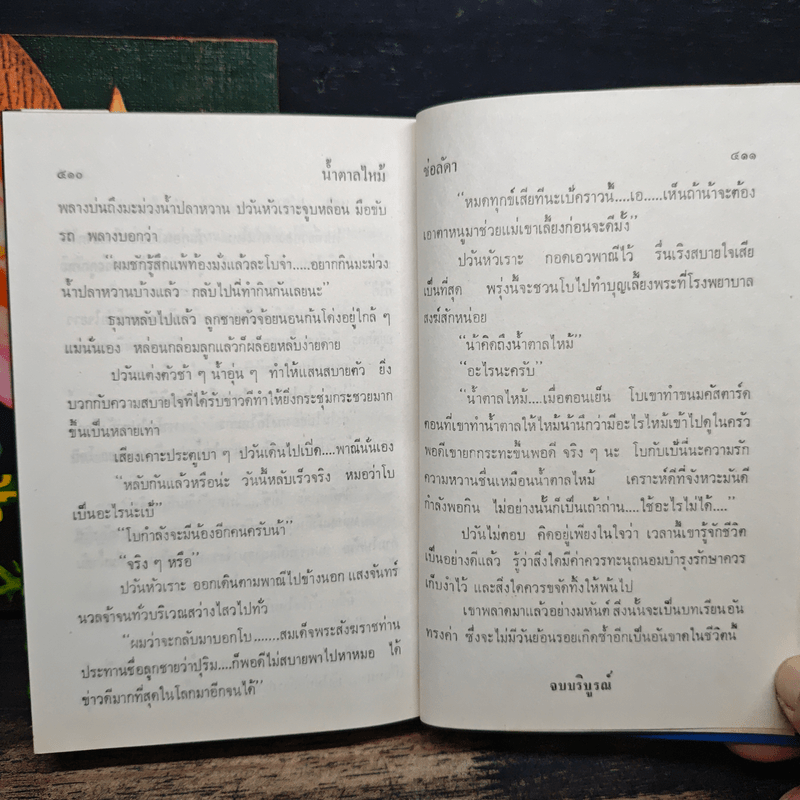 ๕๑๐
น้ำตาลไหม้
พลางบ่นถึงมะม่วงน้ำปลาหวาน ปวันหัวเราะจูบหล่อน มือขับ
รถ พลางบอกว่า
"ผมชักรู้สึกแพ้ท้องมั่งแล้วละโบจ๋า....อยากกินมะม่วง
น้ำปลาหวานบ้างแล้ว กลับไปนี่ทำกินกันเลยนะ"
ธุมาหลับไปแล้ว ลูกชายตัวจ้อยนอนก้นโด่งอยู่ใกล้ ๆ
แม่นั่นเอง หล่อนกล่อมลูกแล้วก็ผล็อยหลับง่ายดาย
ปวันแต่งตัวช้า ๆ น้ำอุ่น ๆ ทำให้แสนสบายตัว ยิ่ง
บวกกับความสบายใจที่ได้รับข่าวดีทำให้ยิ่งกระชุ่มกระชวยมาก
ขึ้นเป็นหลายเท่า
เสียงเคาะประตูเบา ๆ ปวันเดินไปเปิด....พาณีนั่นเอง
"หลับกันแล้วหรือน่ะ วันนี้หลับเร็วจริง หมอว่าโบ
เป็นอะไรน่ะเป้"
"โบกำลังจะมีน้องอีกคนครับน้า"
"จริง ๆ หรือ"
ปวันหัวเราะ ออกเดินตามพาณีไปข้างนอก แสงจันทร์
นวลจ้าจนทั่วบริเวณสว่างไสวไปทั่ว
"ผมว่าจะกลับมาบอกโบ.......สมเด็จพระสังฆราชท่าน
ประทานชื่อลูกชายว่าปุริม....ก็พอดีไม่สบายพาไปหาหมอ ได้
ข่าวดีมากที่สุดในโลกมาอีกจนได้"
ช่อลัดา
๕๑๑
"หมดทุกข์เสียทีนะเป้คราวนี้....เอ.....เห็นถ้าน้าจะต้อง
เอาตาหนูมาช่วยแม่เขาเลี้ยงก่อนจะดีมั้ง"
ปวันหัวเราะ กอดเอวพาณีไว้ รื่นเริงสบายใจเสีย
เป็นที่สุด พรุ่งนี้จะชวนโบไปทำบุญเลี้ยงพระที่โรงพยาบาล
สงฆ์สักหน่อย
"น้าคิดถึงน้ำตาลไหม้"
"อะไรนะครับ"
"น้ำตาลไหม้....เมื่อตอนเย็น โบเขาทำขนมคัสตาร์ด
ตอนที่เขาทำน้ำตาลให้ไหม้น้านึกว่ามีอะไรไหม้เข้าไปดูในครัว
พอดีเขายกกระทะขึ้นพอดี จริง ๆ นะ โบกับเป้นี่นะความรัก
ความหวานชื่นเหมือนน้ำตาลไหม้ เคราะห์ดีที่จังหวะมันดี
กำลังพอกิน ไม่อย่างนั้นก็เป็นเถ้าถ่าน....ใช้อะไรไม่ได้...."
ปวันไม่ตอบ คิดอยู่เพียงในใจว่า เวลานี้เขารู้จักชีวิต
เป็นอย่างดีแล้ว รู้ว่าสิ่งใดมีค่าควรทะนุถนอมบำรุงรักษาควร
เก็บงำไว้ และสิ่งใดควรขจัดทิ้งให้พ้นไป
เขาพลาดมาแล้วอย่างมหันต์ สิ่งนั้นจะเป็นบทเรียนอัน
ทรงค่า ซึ่งจะไม่มีวันย้อนรอยเกิดซ้ำอีกเป็นอันขาดในชีวิตนี้
จบบริบูรณ์